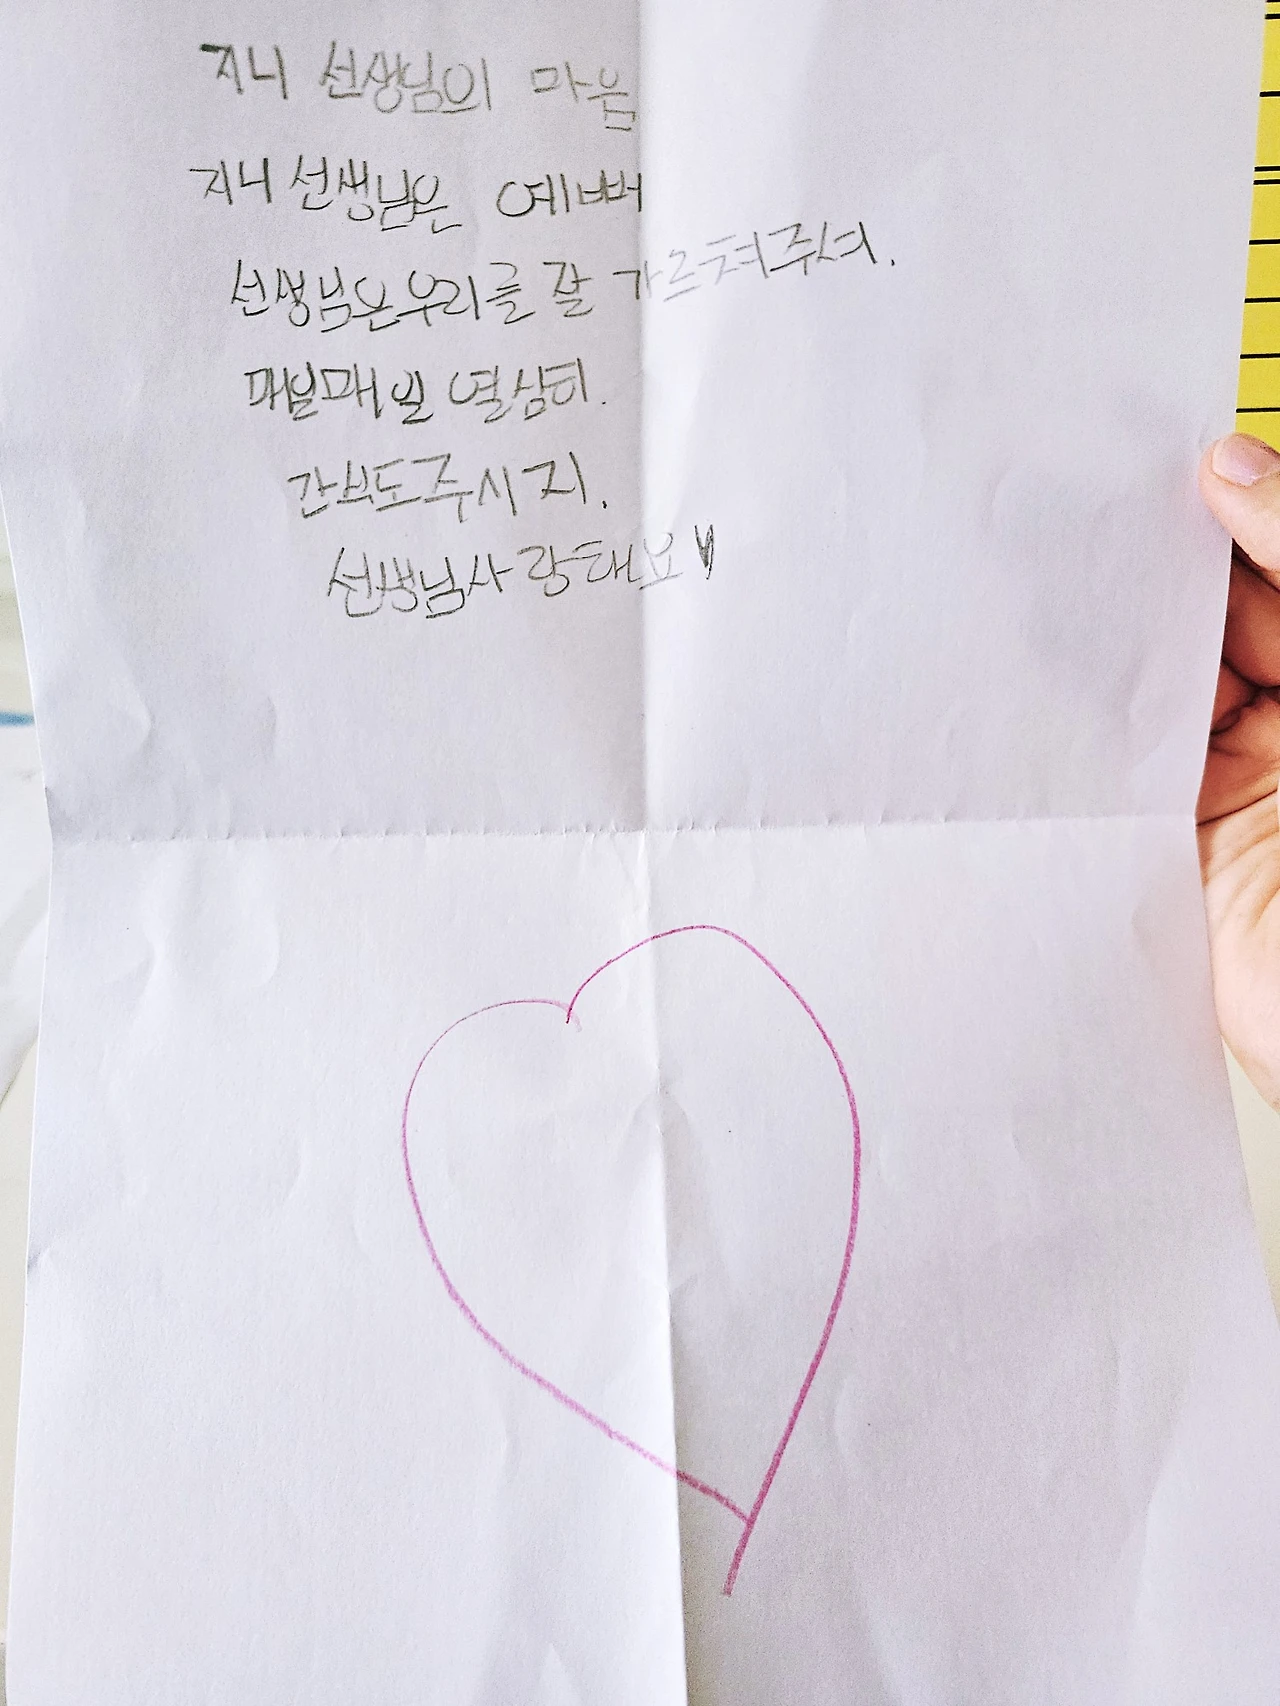 지니 선생님의 마음
지니 선생님은 예뻐
선생님은우리를 잘 가르쳐주셔.
매일매일 열심히.
간식도주시지.
선생님사랑해요♥